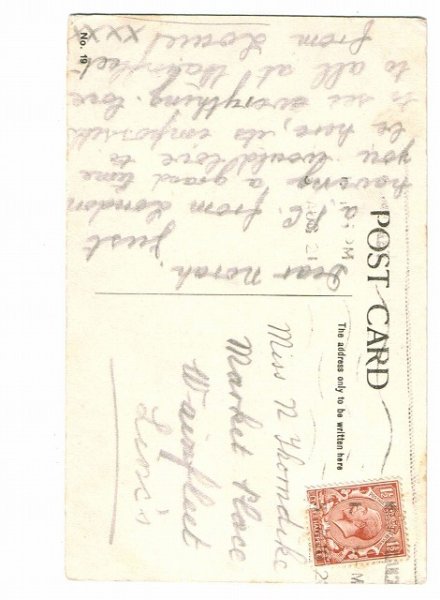 POST CARD
The address only to be written here
Dear Norah.
Just
a P.C. from London
having a good time
you would love to
be here, its impossible
to see everything. love
to all at Wainfleet
from xxx
No. 19
Miss N Thorndike
Market Place
Wainfleet
Lincs
AUG 21
1½ 1½